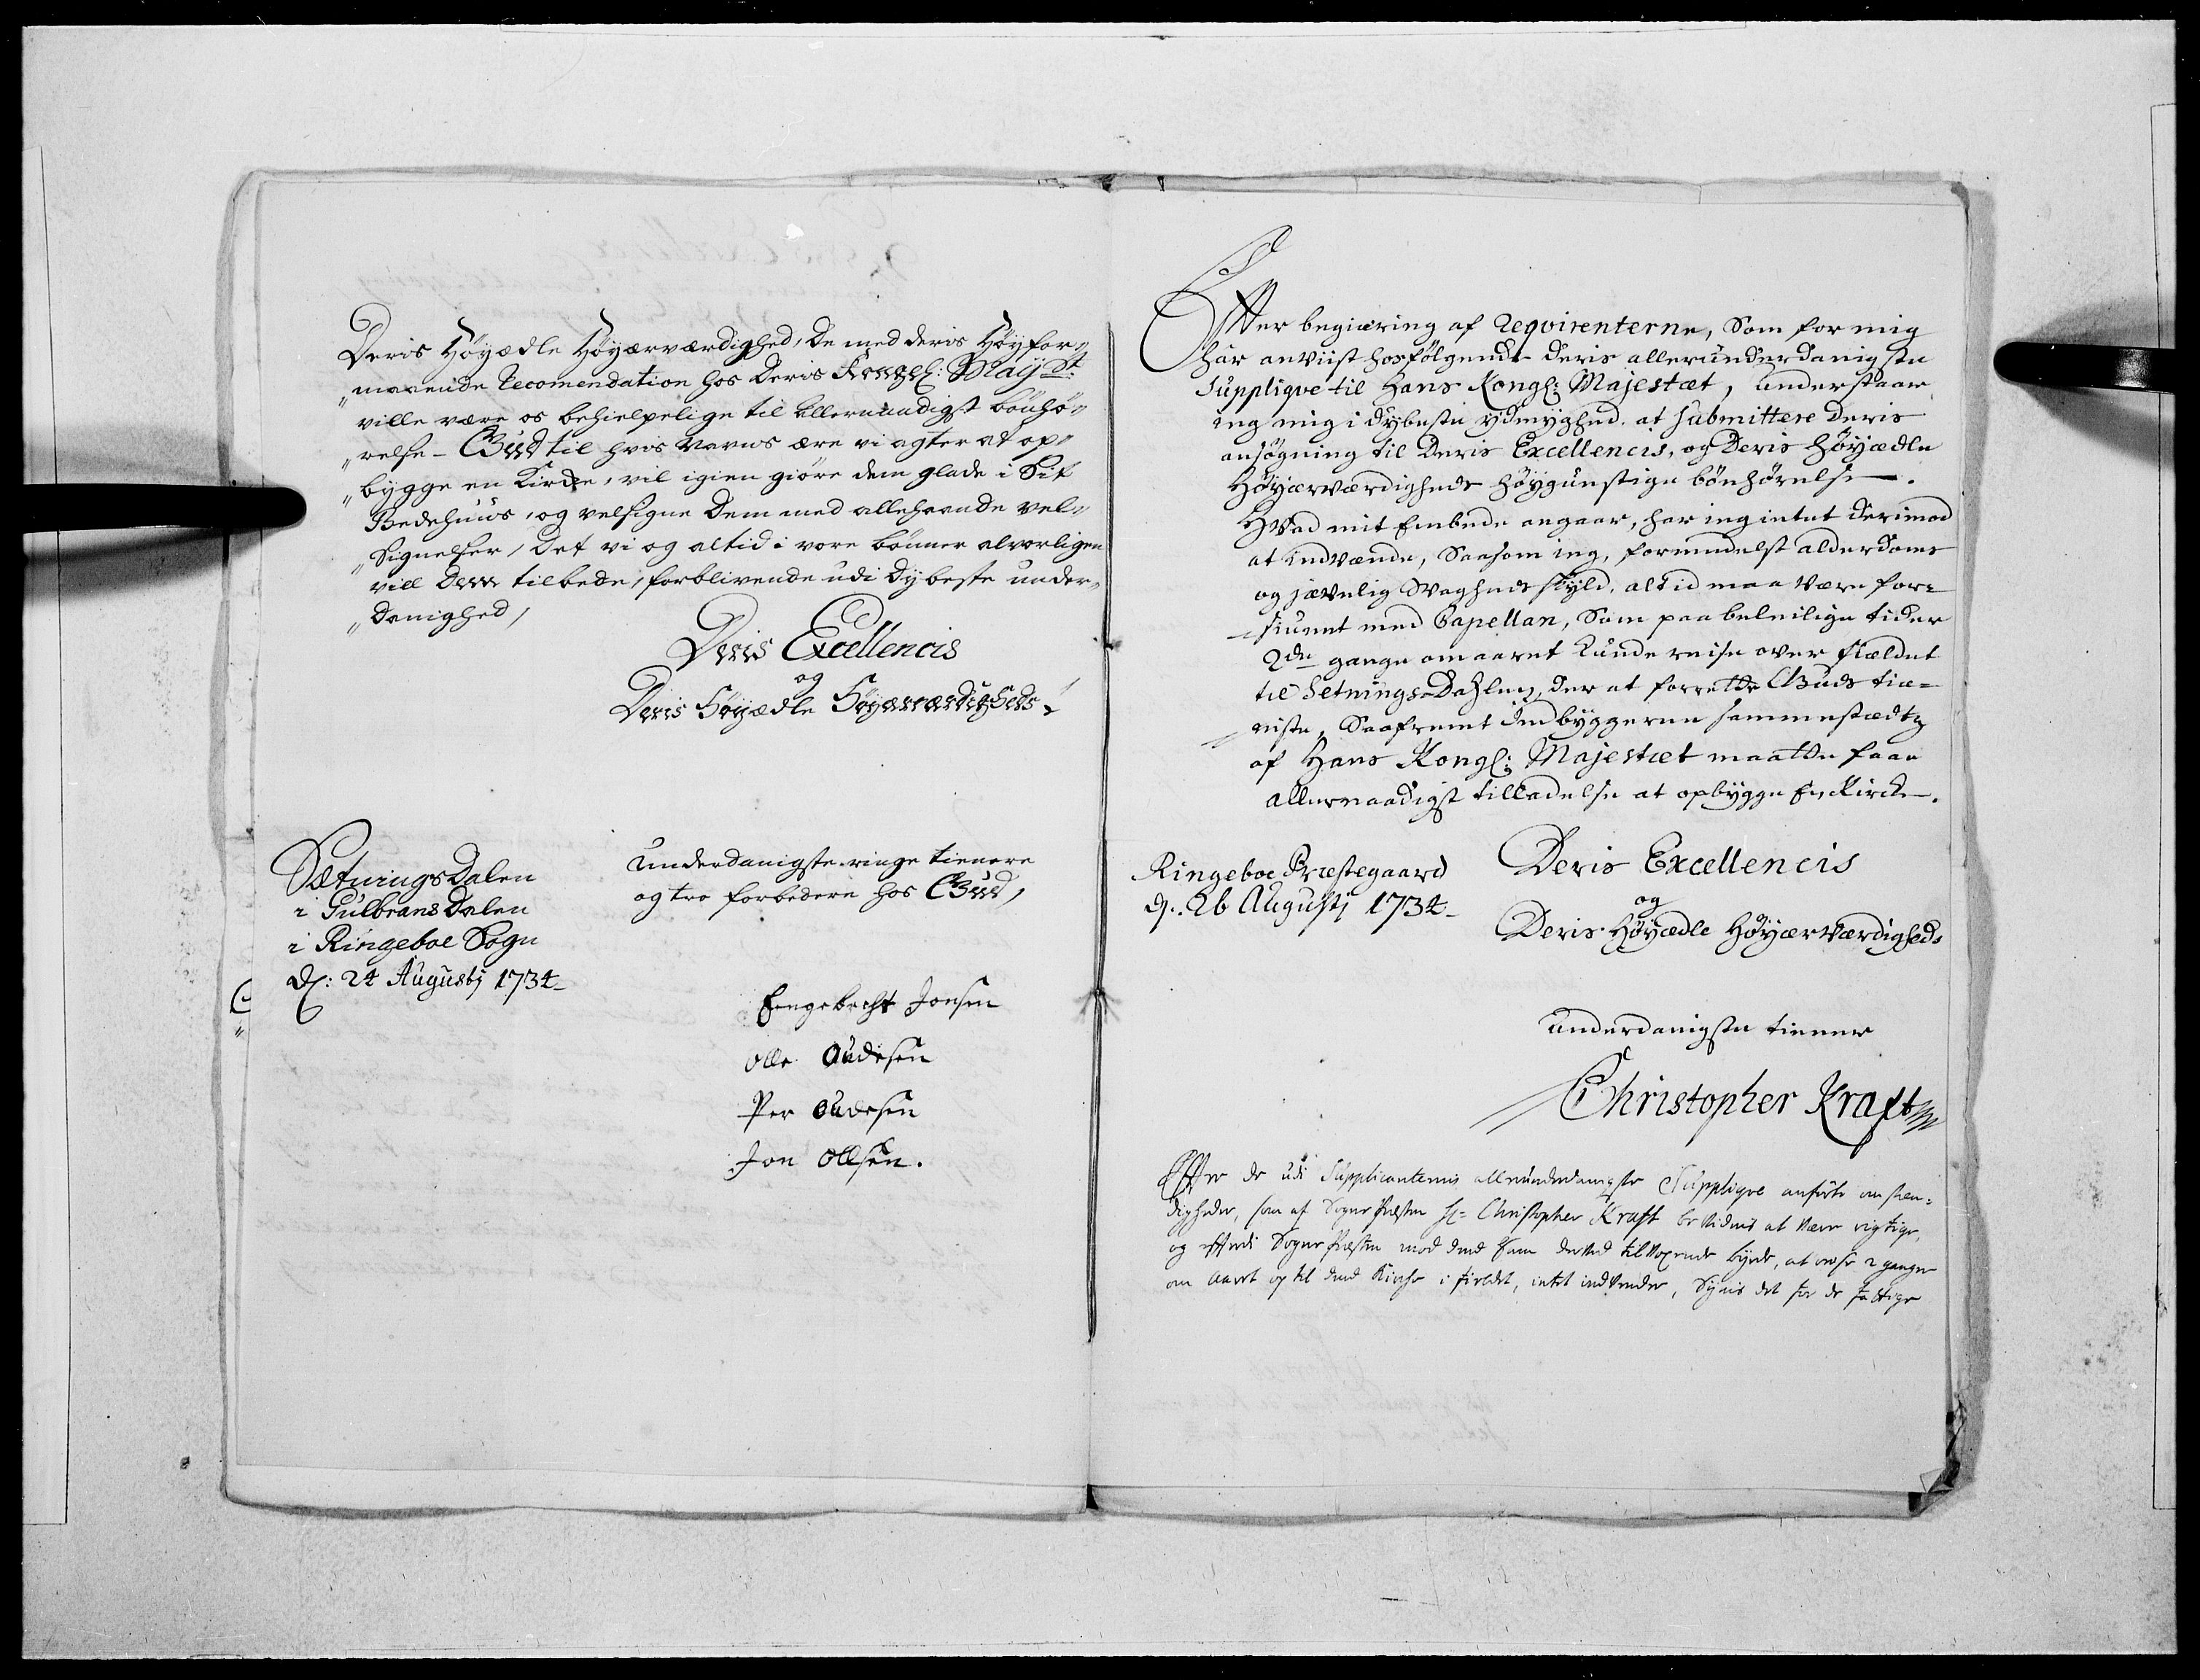 Deris Höyædle Höyærværdighed, De med deris Höyfor„
„maaende Recomendation hos Deris Kongel: Mayst:
ville være os behielpelige til Allernaadigst bönhö„
„relse - Gud til hvis Navns ære vi agter at op„
„bygge en Kircke, vil igien giöre dem glade i Sit
Bedehuus, og velsigne Dem med allehaande vel„
„Signelser, Det vi og altid i vore bönner alvorligen
vill Dem tilbede, forblivende udi Dybeste under„
„danighed,
Deris Excellencis
og
Deris Höyædle Höyærværdigheds
SætningsDalen
i GulbransDalen
i Ringeboe Sogn
d: 24 Augustj 1734
Underdanigste ringe tienere
og tro forbedere hos Gud,
Engebrecht Jonsen
Olle Audesen
Per Oudesen
Jon Ollsen.
Efter begiæring af Reqvirenterne, Som for mig
har anviist hosfölgende deris allerunderdanigste
Suppliqve til Hans Kongl: Majestæt, understaar
ieg mig i dybeste ydmyghed at submittere deris
ansögning til Deris Excellencis, og Deris Höyædle
Höyærværdigheds höygunstige bönhörelse.
Hvad mit Embede angaar, har ieg intet derimod
at indvende, Saasom ieg, formedelst alderdoms
og jævnlig Svagheds skyld, altid maa være for=
=siunet med Capellan, Som paa beleilige tider
2de gange om aaret kunde reise over fieldet
til Setnings-Dahlen, der at forrette Guds tie=
=niste, Saafremt indbyggerne sammestædtz
af Hans Kongl: Majestæt maatte faae
allernaadigst tilladelse at opbygge En Kircke.
Ringeboe Præstegaard
d. 26 Augustj 1734
Deris Excellencis
og
Deris Höyædle Höyærværdigheds
underdanigste tiener
Christopher Kraft
Efter de udi Supplicanternis allerunderdanigste Supplique anförte omstæn=
digheder, som af Sogne Præsten Hr= Christopher Kraft bevidnis at være rigtige,
og efterdi Sogne Præsten mod dend ham derved tilvoxende byrde, at reyse 2 gange
om aaret op til dend Kirche i fieldet, intet indvender, Synis det for de fattige